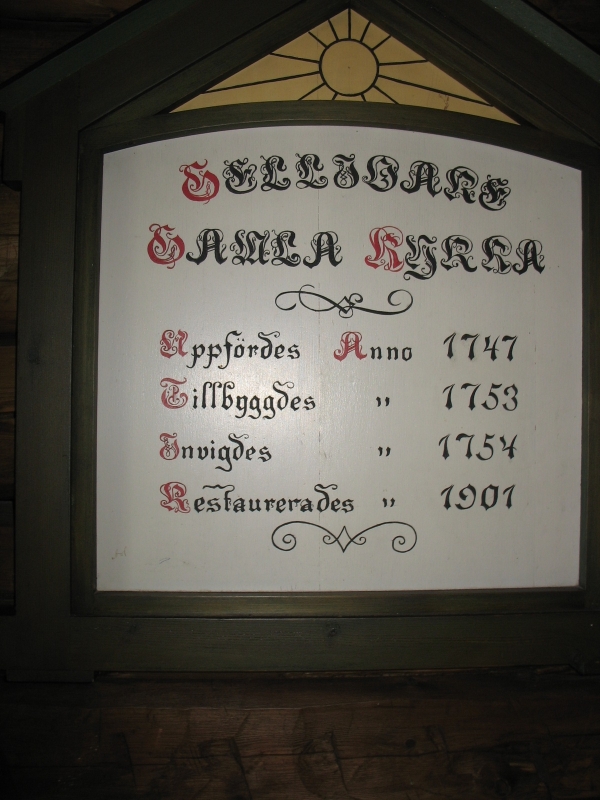 GELLIVARE
GAMLA KYRKA
Uppfördes Anno 1747
Tillbyggdes " 1753
Invigdes " 1754
Restaurerades " 1901